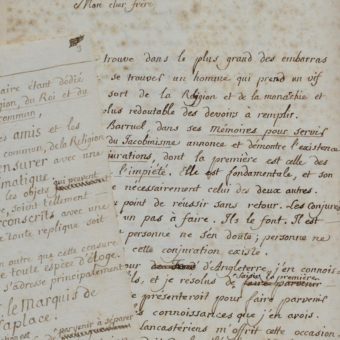 Mon cher frère
trouve dans le plus grand des embarras
se trouver un homme qui prend un vif
sort de la Religion et de la monarchie et
plus redoutable des devoirs à remplir.
Barruel, dans ses Mémoires pour servir
du Jacobinisme annonce et démontre l'existence
jurations, dont la première est celle des
l'impiété. Elle est fondamentale, et son
nécessairement celui des deux autres.
point de réussir sans retour. Les Conjurés
un pas à faire. Ils le font. Il est
personne ne s'en doute; personne ne
cette conjuration existe.
pour d'Angleterre, j'en connois
ls, et je resolus de faire parvenir
faire la première
presenteroit pour faire parvenir
connoissances que j'en avois.
lancastériens m'offrit cette occasion
aire étant dédié
gion, du Roi et du
commun,
amis et les
commun, de la Religion
ensurer avec une
matique.
les objets qui peuvent
soient tellement
conscrits avec une
toute replique soit
en outre que cette censure
de toute espèce d'éloge.
s'adresse principalement
le Marquis de
aplace.
parvenir à séparer